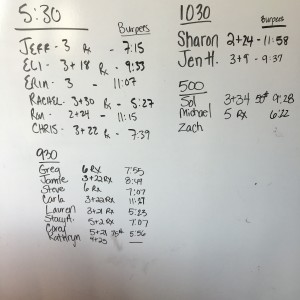 5:30
Burpees
JEFF - 3 Rx - 7:15
ELI - 3 + 18 Rx - 9:33
ERIN - 3 11:07
RACHEL - 3+30 Rx - 5:27
Ron - 2+24 - 11:15
CHRIS - 3+22 Rx - 7:39
930
Greg 6 Rx 7:55
Jamie 3+22 Rx 8:49
Steve 6 Rx 7:07
Carla 3+22 Rx 11:27
Lauren 3+21 Rx 5:23
Stacy H. 5+2 Rx 7:07
Corey 5+21 5:56
Kathryn 4+25
1030
Burpees
Sharon 2+24 - 11:58
Jen H. 3+9 - 9:37
500
Burpees
Sol 3+34 50# 9:28
Michael 5 Rx 6:22
Zach